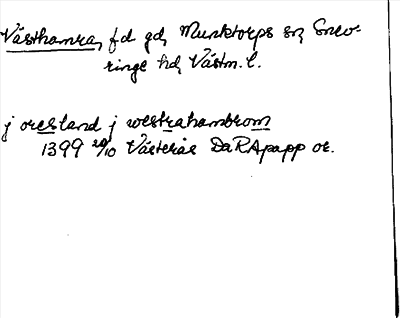 Västhamra, f.d. gd, Munktorps sn, Snev-
ringe hd, Västm. l.
j oresland j westrahambrom
1399 29/10 Västerås DaRApapp or.